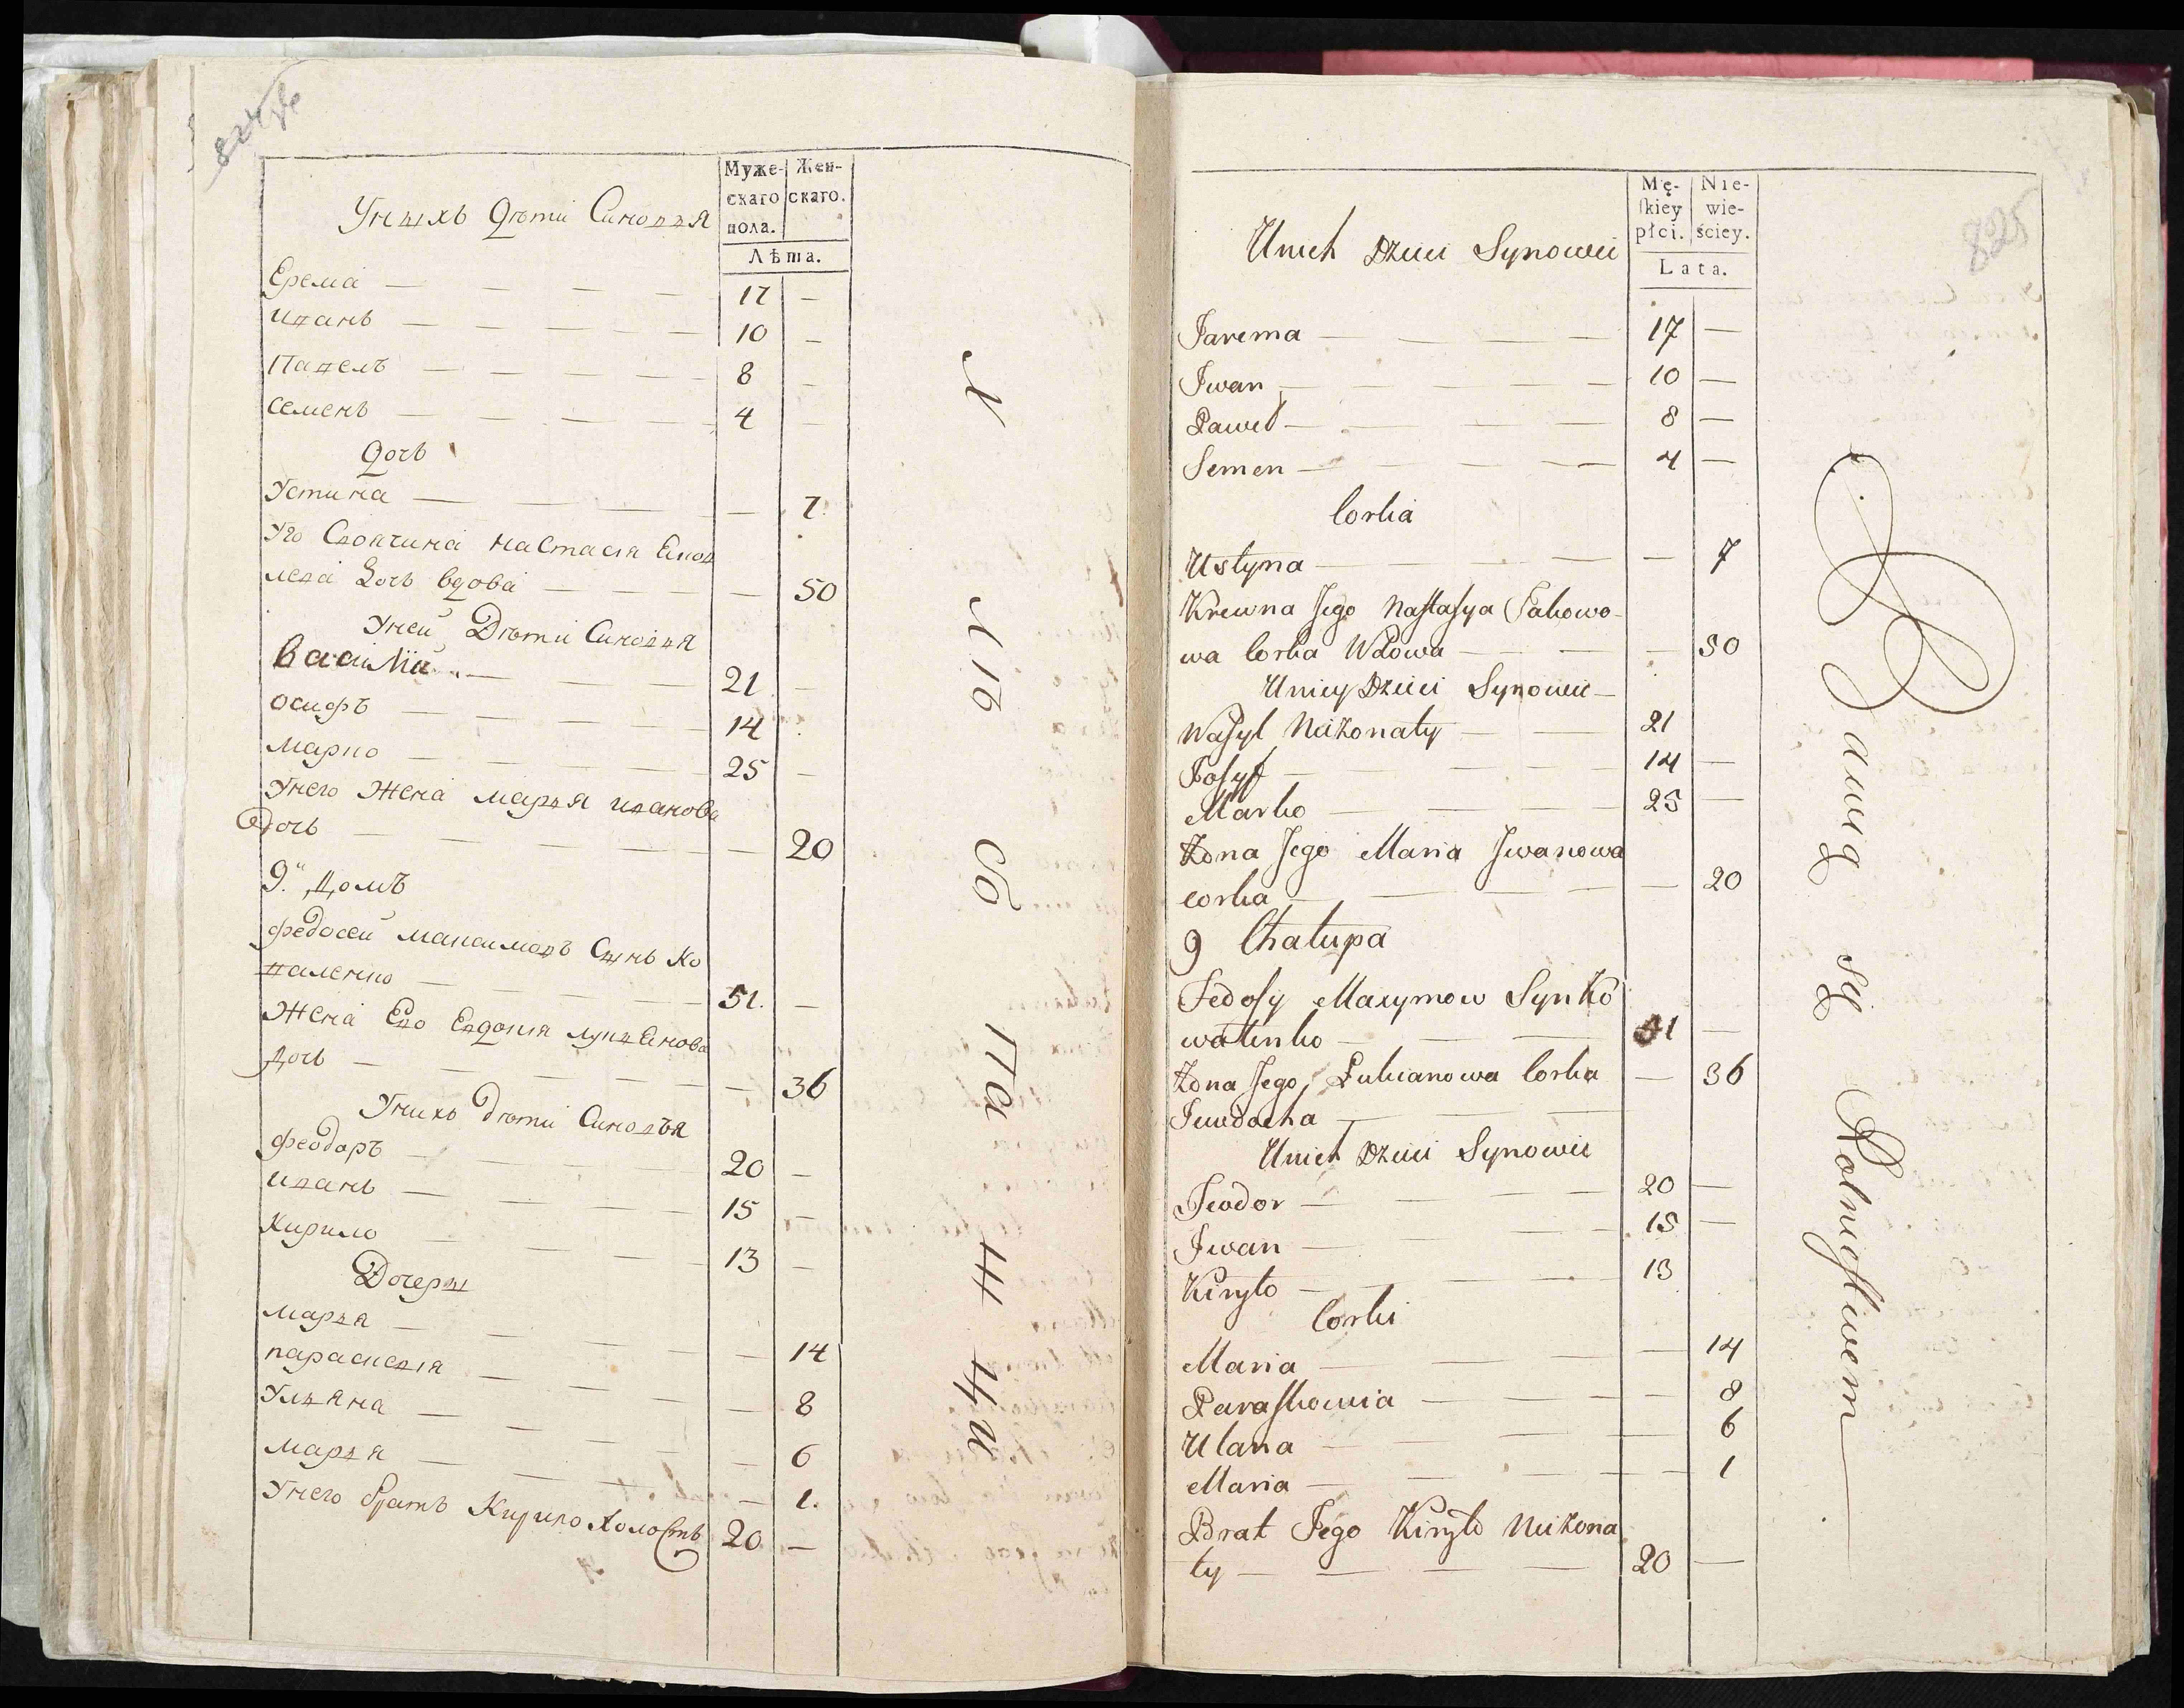 Муже-
скаго
пола.
Жен-
скаго.
Лѣта.
Унихъ Дѣти Синовя
Ерема — 17 —
Иванъ — 10 —
Павелъ — 8 —
Семенъ — 4 —
Дочь
Устина — — 7.
Дочь Вдова — — 50
Уней Дѣти Синовя
Василий — 21 —
Осифъ — 14
Марко — 25 —
Унего Жена Марья Иванова
Дочь — — 20
9. Домъ
Федосей Максимовъ Сынъ Ко
валенко — 51. —
Жена Его Евдокия Лукьянова
Дочь — — 36
Унихъ Дѣти Синовья
Феодоръ — 20 —
Иванъ — 15 —
Кирило — 13 —
Дочеры
Марья — — 14
Параскевия — — 8
Ульяна — — 6
Марья — — 1.
Унего братъ Кирило Холостъ 20 —
825
Mę-
skiey
płci.
Nie-
wie-
ściey.
Lata.
Unich Dzieci Synowie
Jarema — 17 —
Jwan — 10 —
Paweł — 8 —
Semen — 4 —
Corka
Ustyna — — 7
Krewna Jego Nastasya Jakowo-
wa Corka Wdowa — — 50
Uniey Dzieci Synowie —
Wasyl Nieżonaty — 21
Josyf — 14 —
Marko — 25 —
Żona Jego Maria Jwanowa
corka — — 20
9 Chałupa
Fedosy Maxymow Syn Ko
walenko — 51 —
Żona Jego Łukianowa Corka — 36
Jewdocha —
Unich Dzieci Synowie
Feodor — 20 —
Jwan — 15 —
Kiryło — 13
Corki
Maria — — 14
Paraskowia — — 8
Ulana — — 6
Maria — — 1
Brat Jego Kiryło Nieżona
ty — 20 —